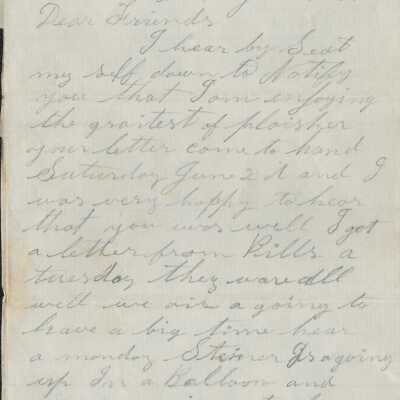 Dear Friends
I hear by Seat
my self down to Notify
you that I am enjoying
the graitest of plaisher
your letter come to hand
Saturday June 2 d and I
was very happy to hear
that you was well I got
a letter from Bills a
tuesday they ware all
well we air a going to
have a big time hear
a monday Steiner Is a going
up In a Balloon and